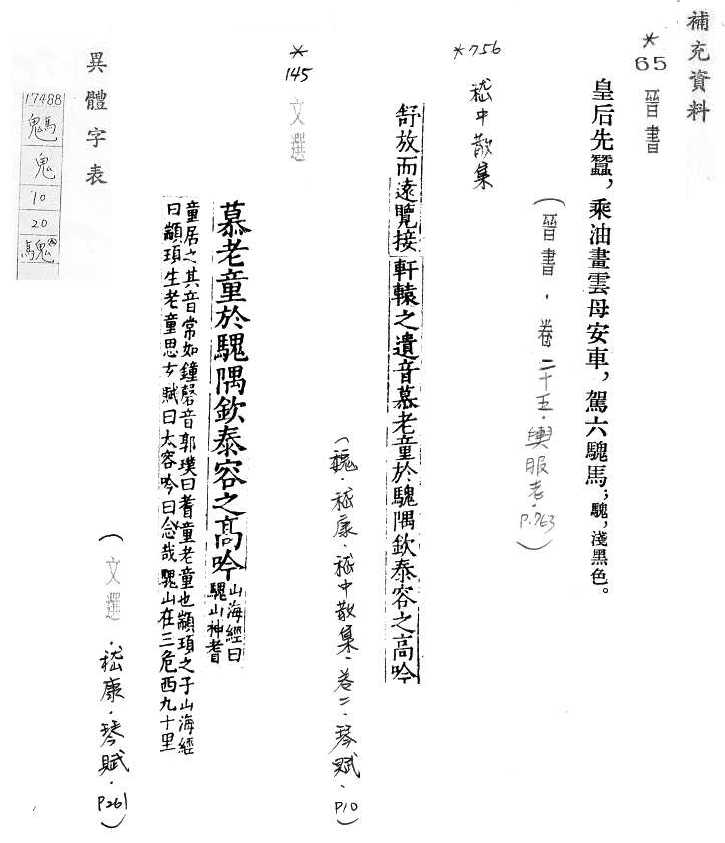 補充資料
*65 晉書
皇后先蠶，乘油畫雲母安車，駕六騩馬；騩，淺黑色。
（晉書．卷二十五．輿服志．P.763）
*756 嵇中散集
舒放而遠覽接軒轅之遺音慕老童於騩隅欽泰容之高吟
（魏．嵇康．嵇中散集．卷二．琴賦．P10）
*145 文選
慕老童於騩隅欽泰容之高吟
山海經曰
騩山神耆
童居之其音常如鐘磬音郭璞曰耆童老童也顓頊之子山海經
曰顓頊生老童思玄賦曰太容吟曰念哉騩山在三危西九十里
（文選．嵇康．琴賦．P261）
異體字表
17488
鬼
10
20
騩